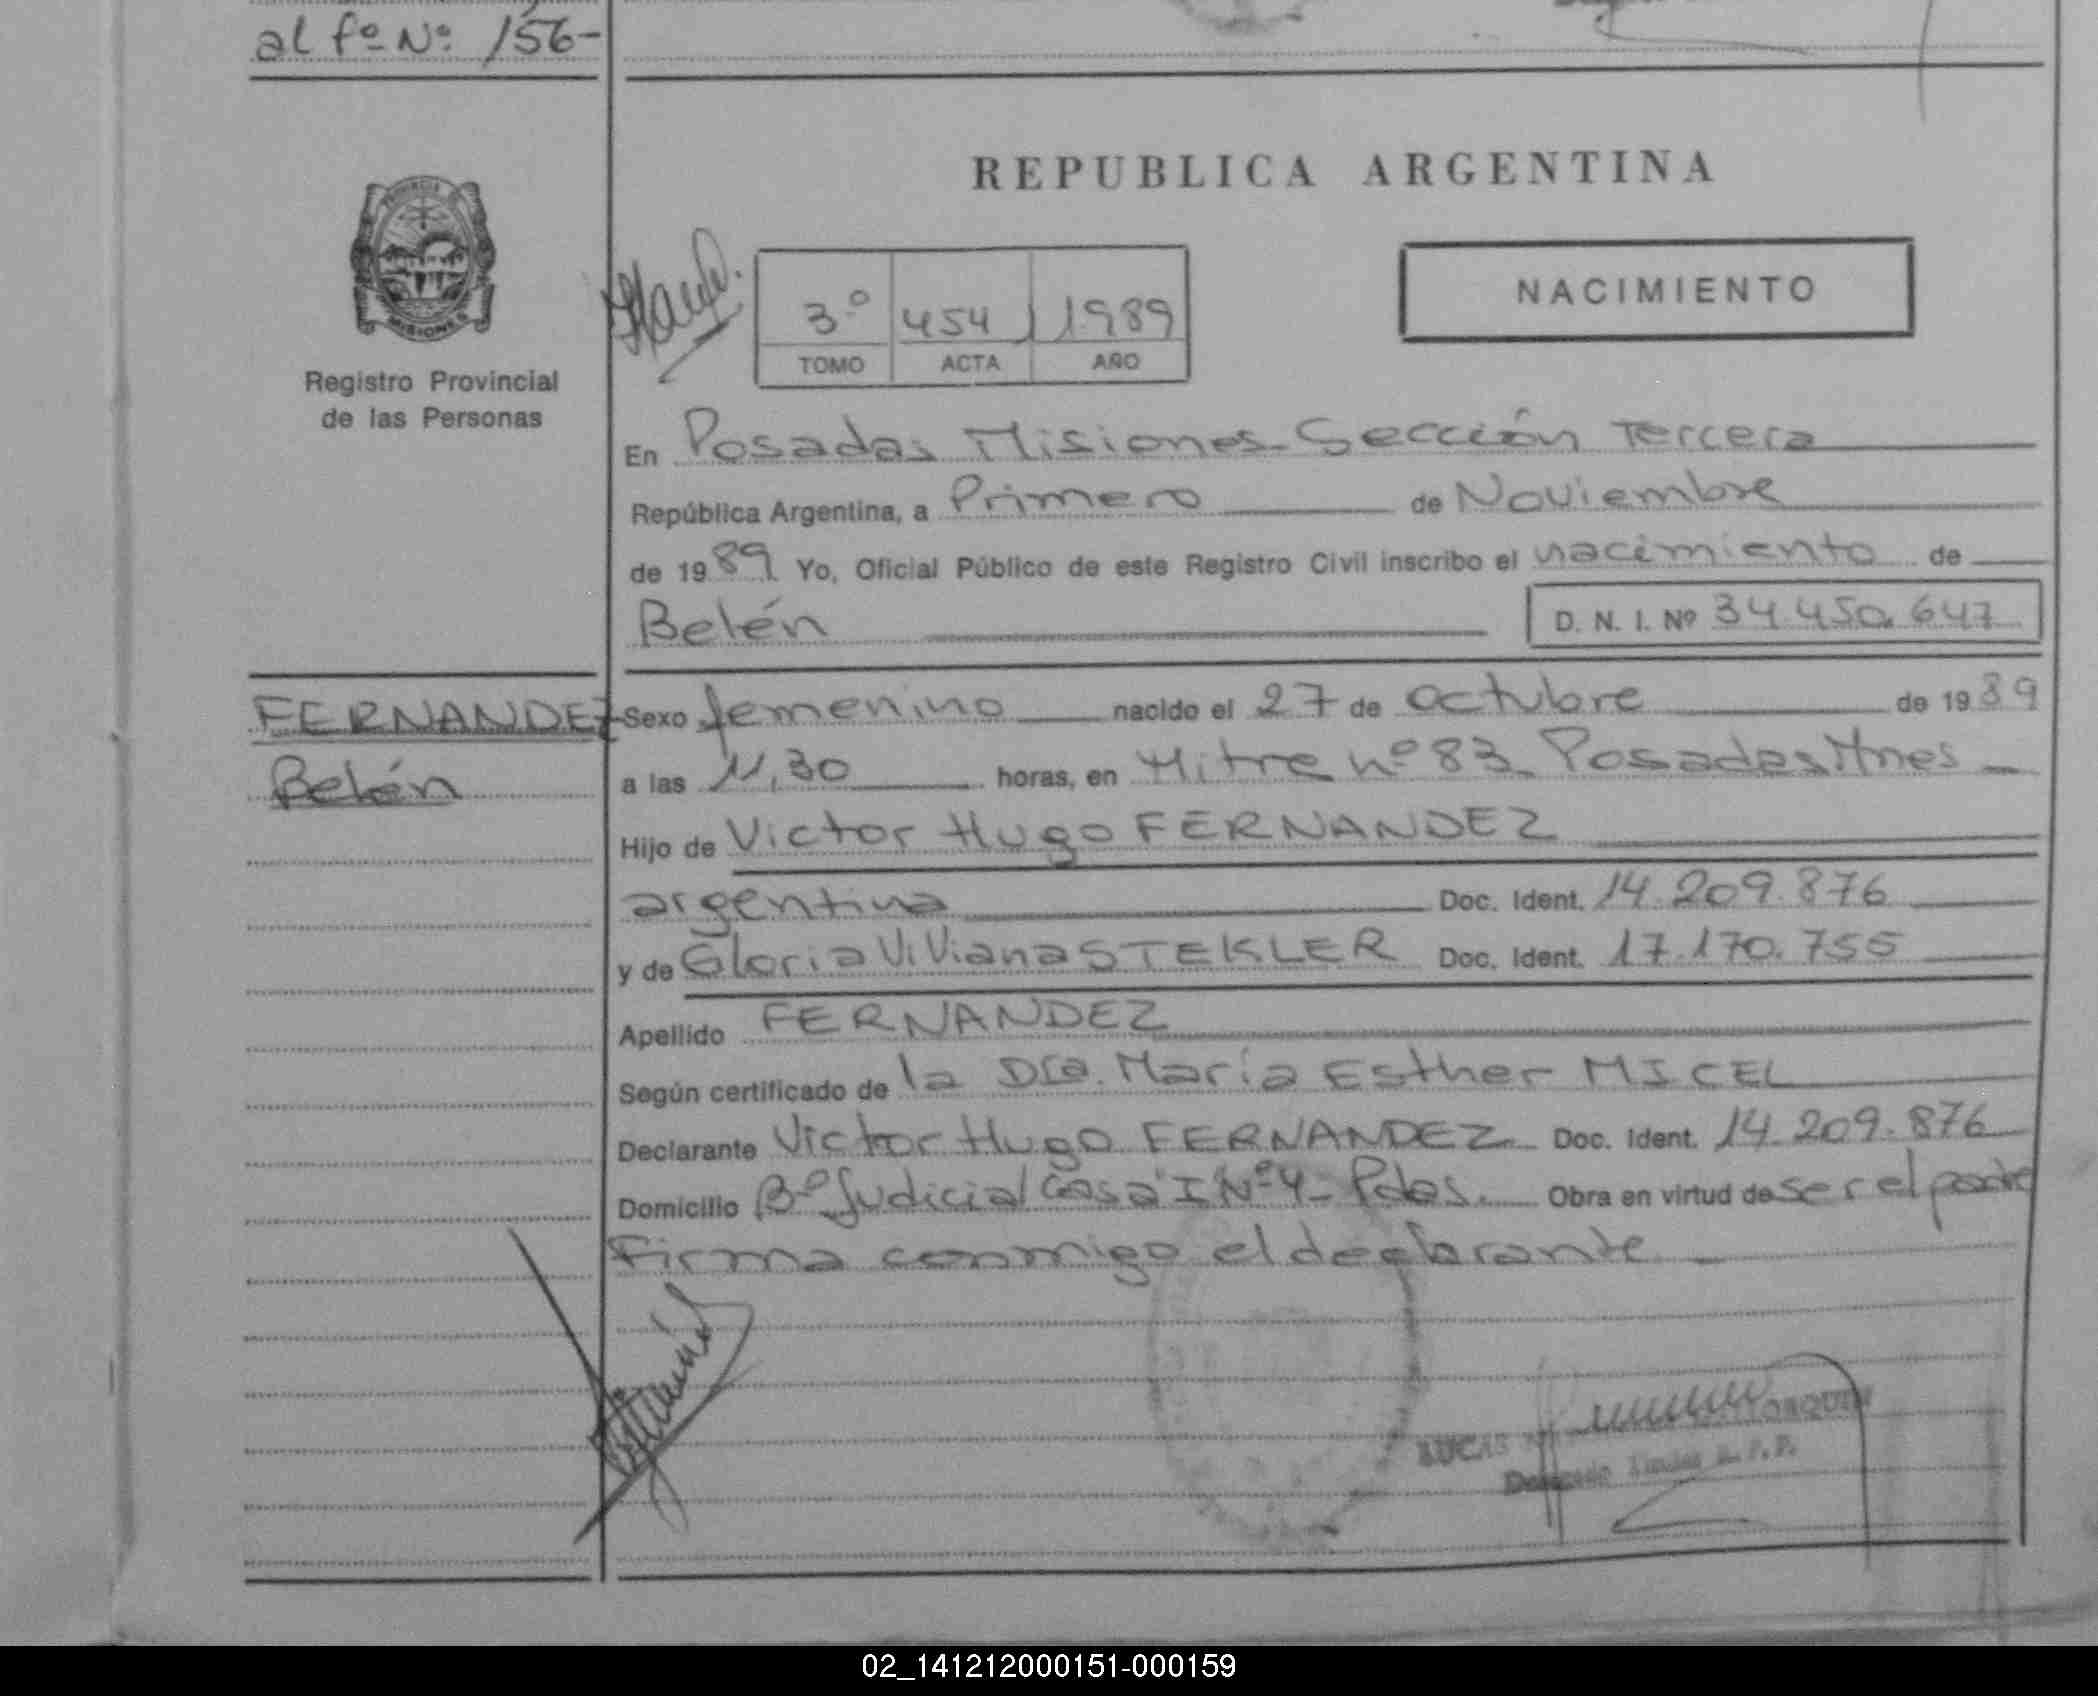 al fº Nº 156-
REPUBLICA ARGENTINA
MISIONES
Registro Provincial
de las Personas
3º 454 1989
TOMO ACTA AÑO
NACIMIENTO
En Posadas Misiones-Sección Tercera
República Argentina, a Primero de Noviembre
de 1989 Yo, Oficial Público de este Registro Civil inscribo el nacimiento de
Belén D. N. I. Nº 34.450.647
FERNANDEZ
Belén
Sexo femenino nacido el 27 de octubre de 1989
a las 11,30 horas, en Mitre nº 83 Posadas Mnes
Hijo de Victor Hugo FERNANDEZ
argentina Doc. Ident. 14.209.876
y de Gloria Viviana STEKLER Doc. Ident. 17.170.755
Apellido FERNANDEZ
Según certificado de la Dra. María Esther MICEL
Declarante Victor Hugo FERNANDEZ Doc. Ident. 14.209.876
Domicilio Bº Judicial Casa I Nº 4- Pdas. Obra en virtud de ser el padre
Firma conmigo el declarante
LUCAS
02_141212000151-000159